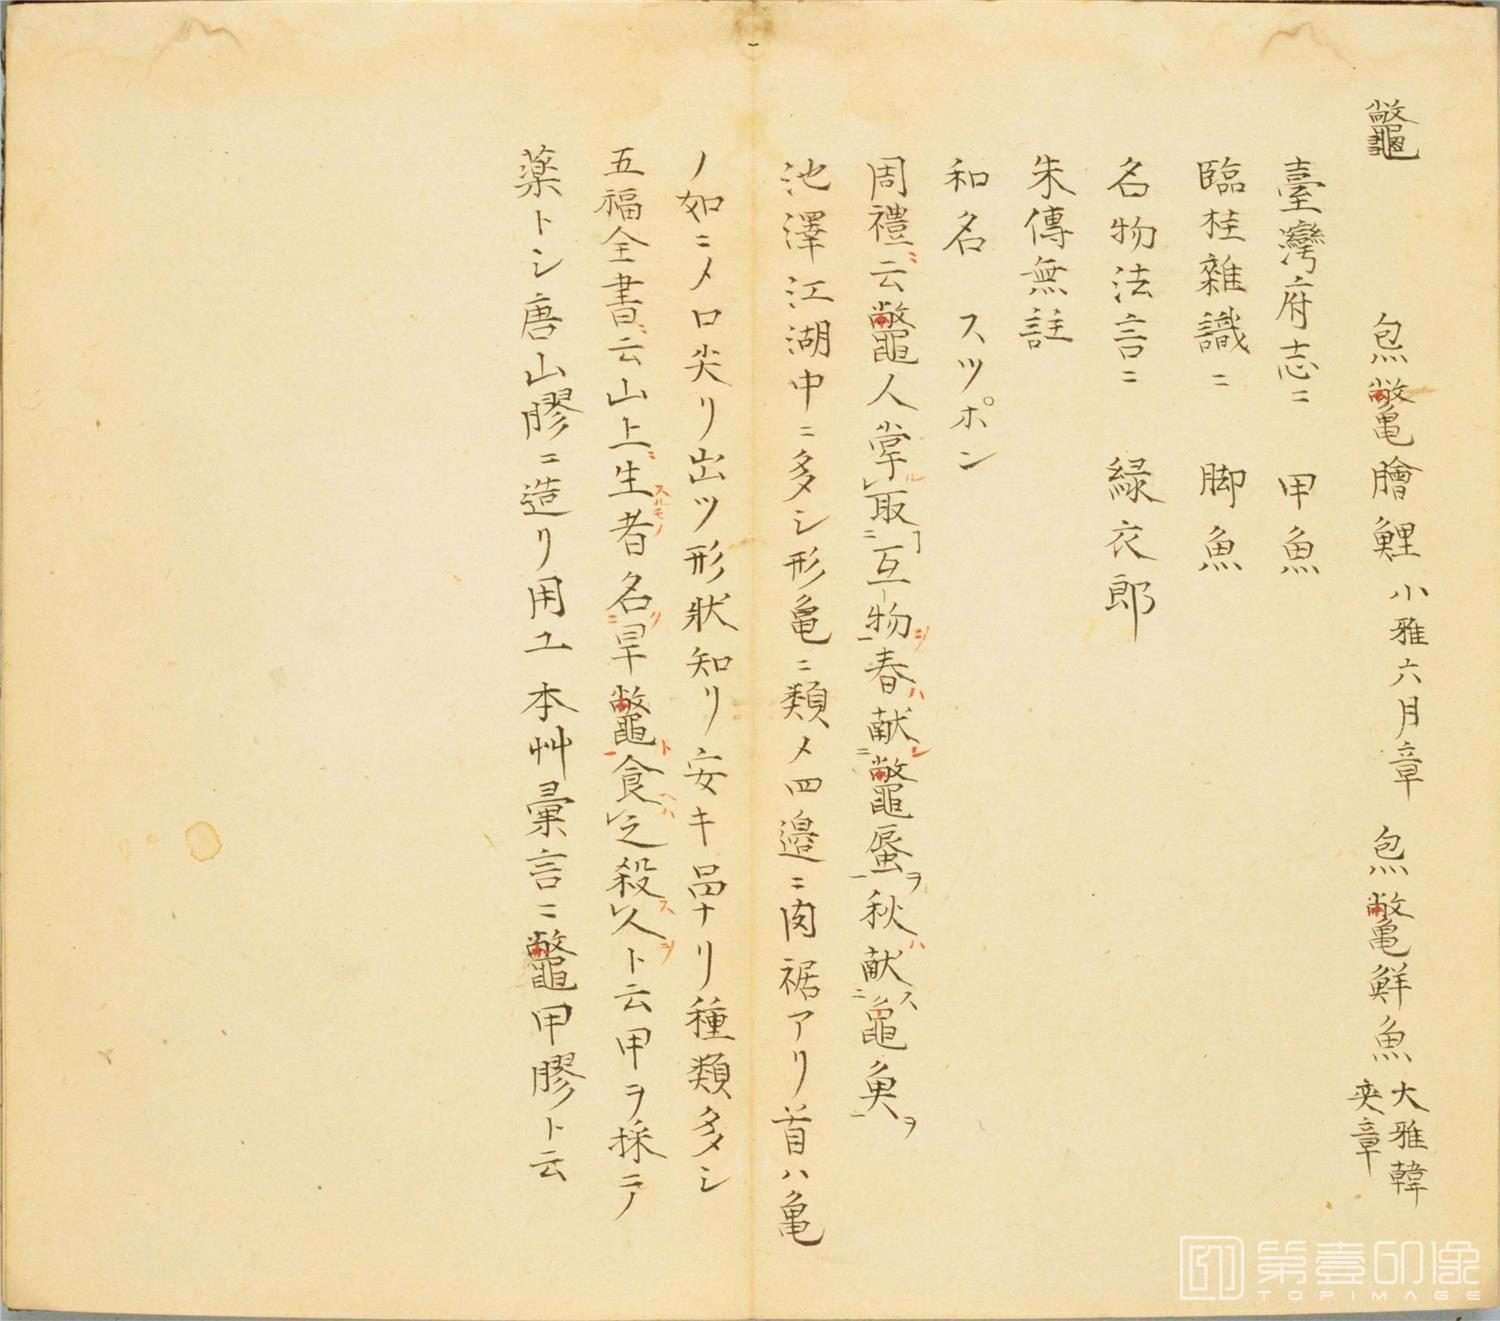 鼈
炰鼈膾鯉 小雅六月章 炰鼈鮮魚 大雅韓奕章
臺灣府志ニ 甲魚
臨桂雜識ニ 脚魚
名物法言ニ 緑衣郎
朱傳無註
和名 スツポン
周禮ニ云鼈人掌ルレ取ニ互物ヲ一春ハ献シニ鼈蜃ヲ一秋ハ献スニ龜臾ヲ一
池澤江湖中ニ多シ形亀ニ類メ四邉ニ肉裾アリ首ハ亀
ノ如ニメ口尖リ出ツ形狀知リ安キ品ナリ種類多シ
五福全書ニ云山上ニ生スルモノ者名ニツ旱鼈ト一食ヘハレ之殺スレ人ヲト云甲ヲ採ニノ
薬トシ唐山膠ニ造リ用ユ本艸彙言ニ鼈甲膠ト云
第壹印像
TOPIMAGE